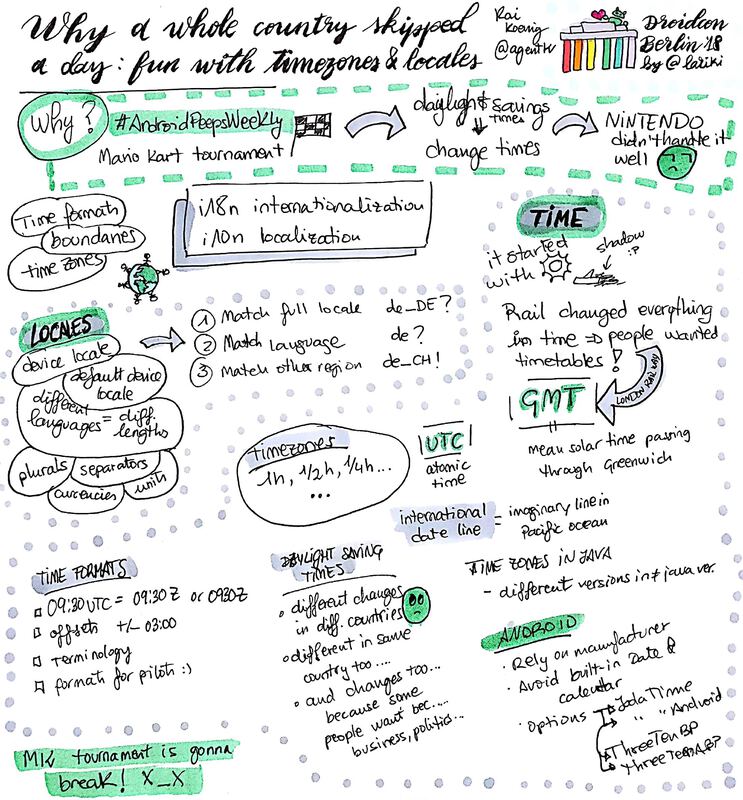 Why a whole country skipped
a day: fun with timezones & locales
Rai
Koenig
@agenthv
Droidcon
Berlin '18
by @lariki
Why?
#AndroidPeepsWeekly
Mario Kart tournament
daylight savings
times
change times
NiNTENDO
didn't handle it
well
Time formats
boundaries
time zones
i18n internationalization
i10n localization
LOCALES
device locale
default device
locale
different
languages = diff.
lengths
plurals
separators
currencies
units
1 Match full locale de_DE?
2 Match language de?
3 Match other region de_CH!
TIME
it started
with
shadow
:P
Rail changed everything
in time => people wanted
timetables!
LONDON RAIL WAY
GMT
=
mean solar time passing
through Greenwich
timezones
1h, 1/2h, 1/4h...
...
UTC
atomic
time
international
date line
= imaginary line in
Pacific ocean
TIME FORMATS
09:30 UTC = 09:30Z or 0930Z
offsets +/- 03:00
Terminology
formats for pilots :)
DAYLIGHT SAVING
TIMES
• different changes
in diff. countries
• different in same
country too....
• and changes too...
because some
people want bec....
business, politics...
TIME ZONES IN JAVA
- different versions in ≠ java ver.
ANDROID
• Rely on manufacturer
• Avoid built-in Date &
calendar
• options
Joda Time
" " Android
ThreeTenBP
ThreeTenABP
MK tournament is gonna
break! X_X